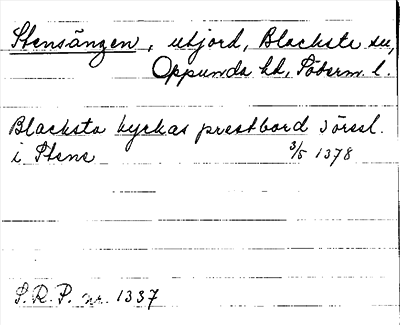 Stensängen, utjord, Blacksta sn,
Oppunda hd, Söderm. l.
Blacksta kyrkas prestbord 3 öresl.
i Stene 3/5 1378
S.R.P. nr. 1337